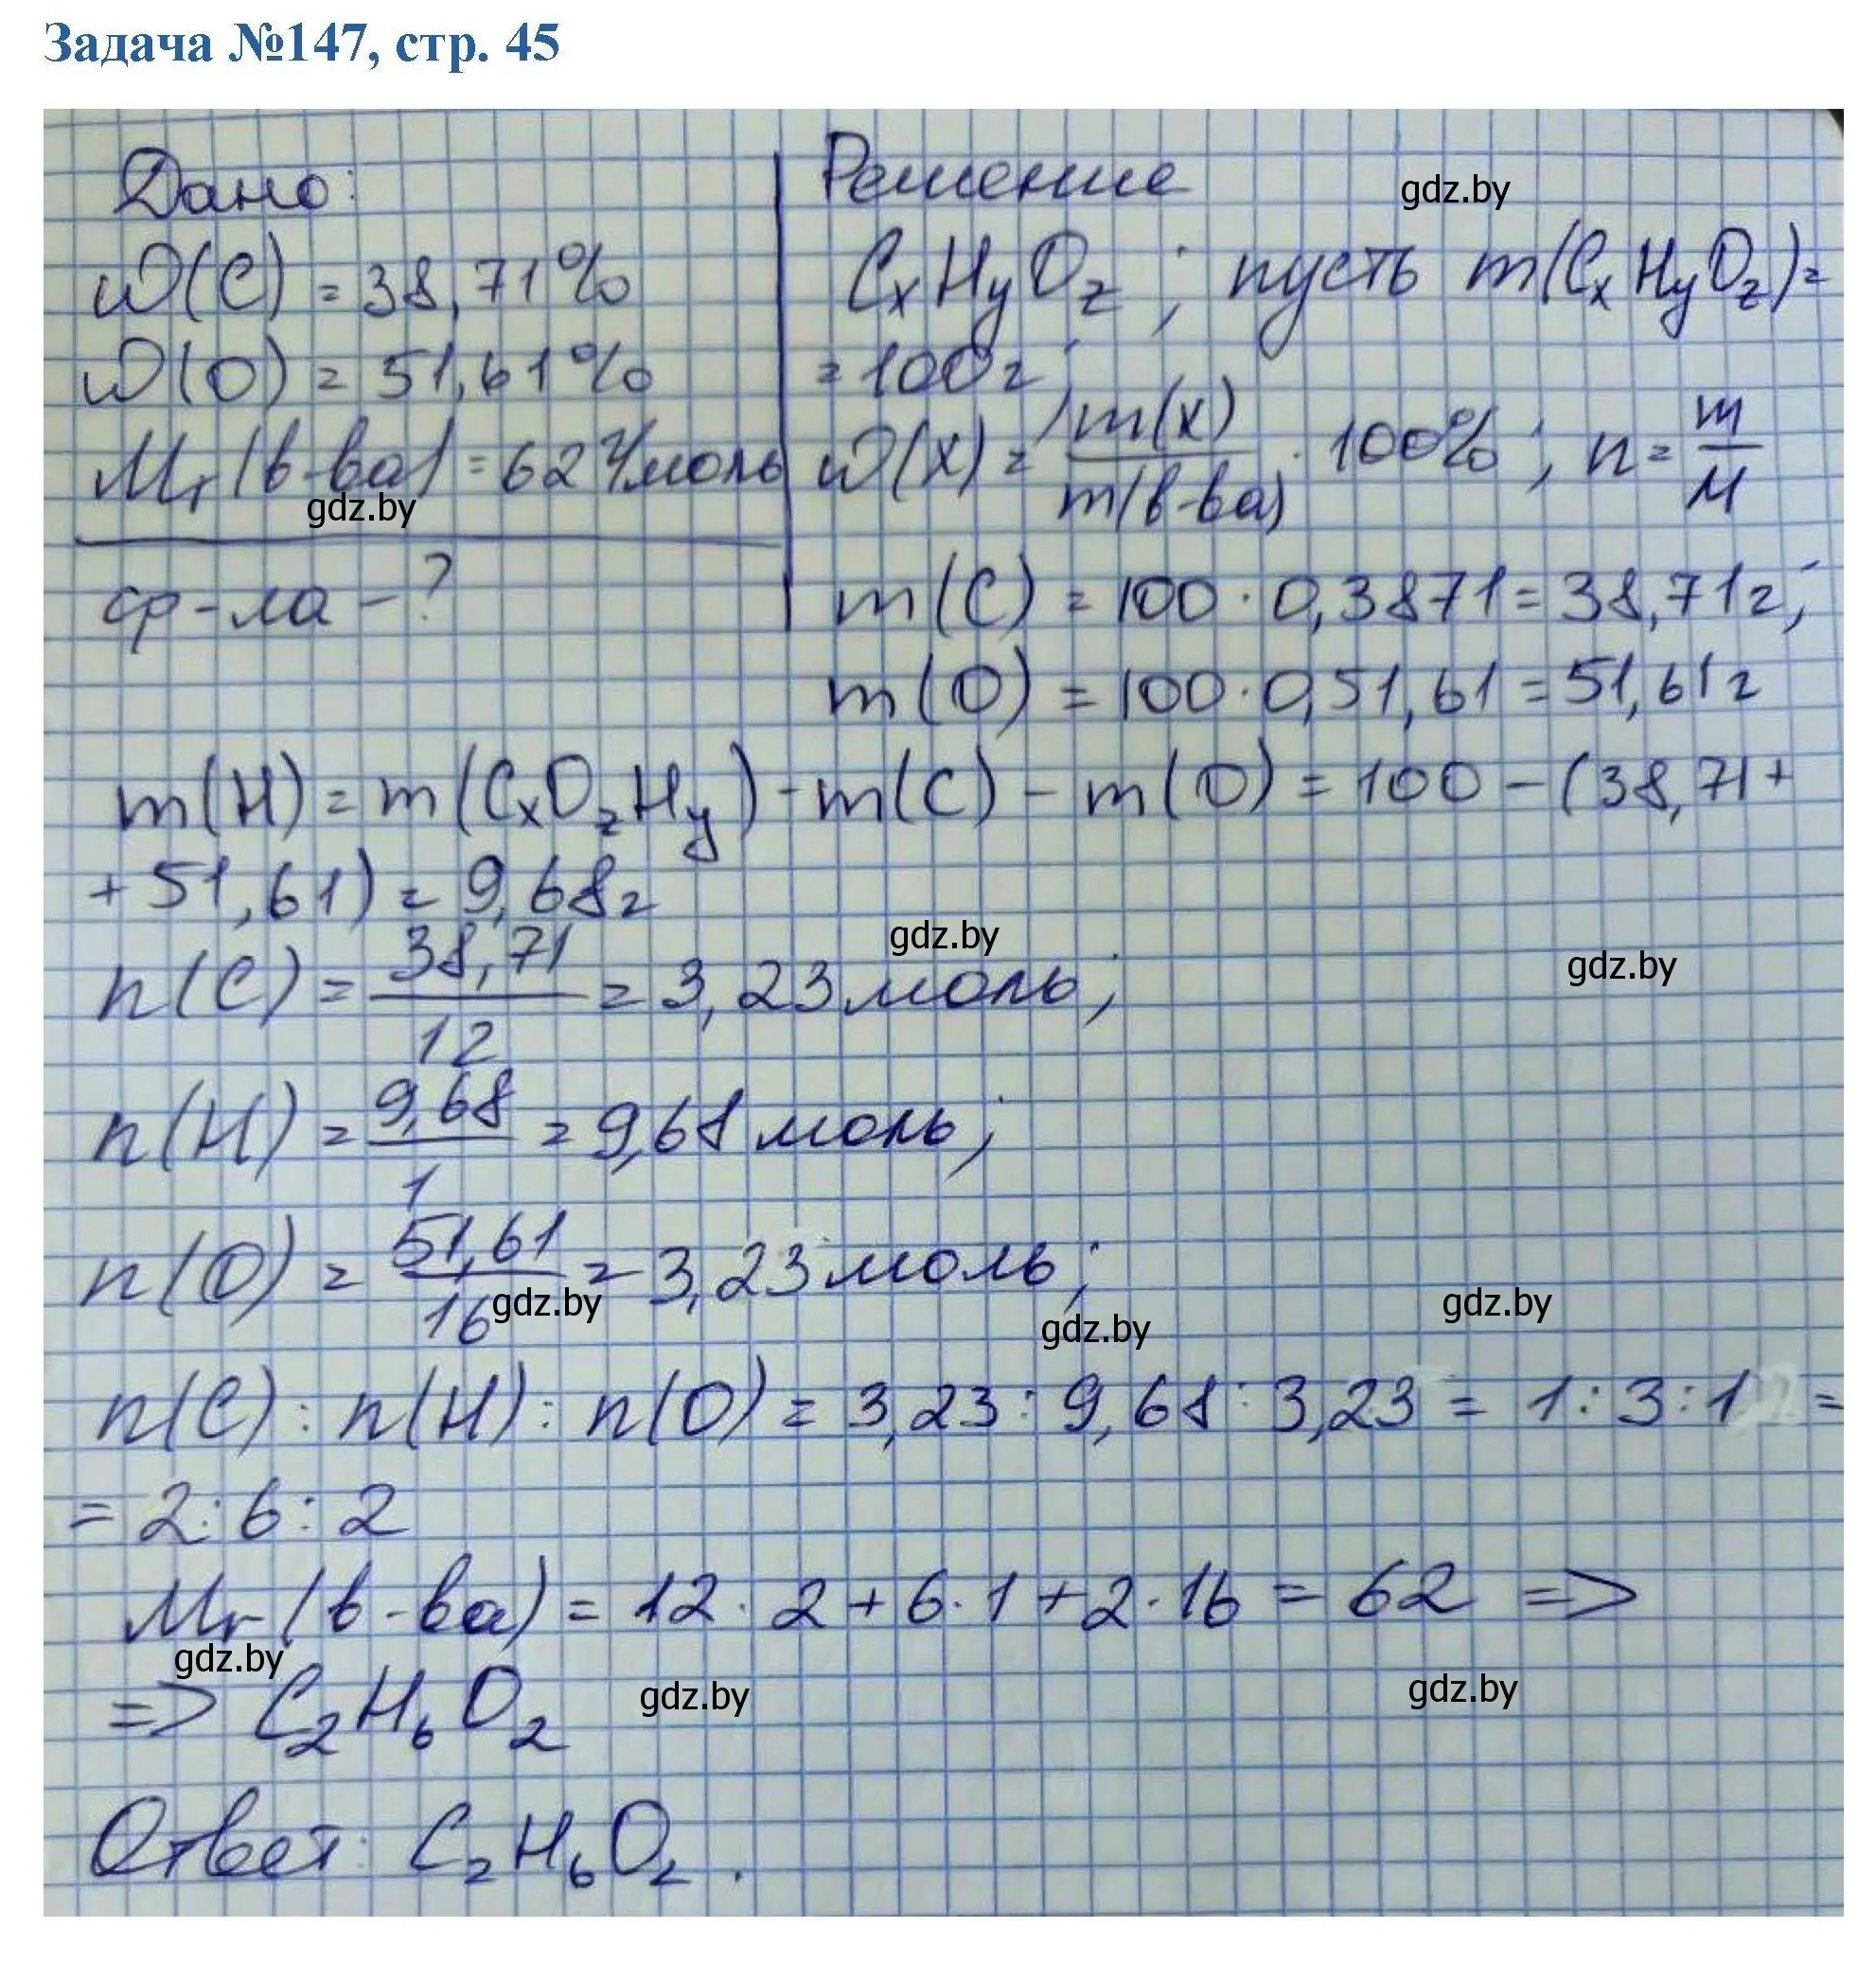 Задача №147, стр. 45
Дано:
ω(C) = 38,71%
ω(O) = 51,61%
Mr(в-ва) = 62 г/моль
ф-ла - ?
Решение
CₓHᵧO_z; пусть m(CₓHᵧO_z) =
= 100г;
ω(x) = m(x)/m(в-ва) · 100%; n = m/M
m(C) = 100 · 0,3871 = 38,71г;
m(O) = 100 · 0,51,61 = 51,61г
m(H) = m(CₓO_zHᵧ) - m(C) - m(O) = 100 - (38,71 +
+ 51,61) = 9,68г
n(C) = 38,71/12 = 3,23 моль;
n(H) = 9,68/1 = 9,68 моль;
n(O) = 51,61/16 = 3,23 моль;
n(C) : n(H) : n(O) = 3,23 : 9,68 : 3,23 = 1 : 3 : 1 =
= 2 : 6 : 2
Mr(в-ва) = 12 · 2 + 6 · 1 + 2 · 16 = 62 =>
=> C₂H₆O₂
Ответ: C₂H₆O₂.
gdz.by
gdz.by
gdz.by
gdz.by
gdz.by
gdz.by
gdz.by
gdz.by
gdz.by
gdz.by